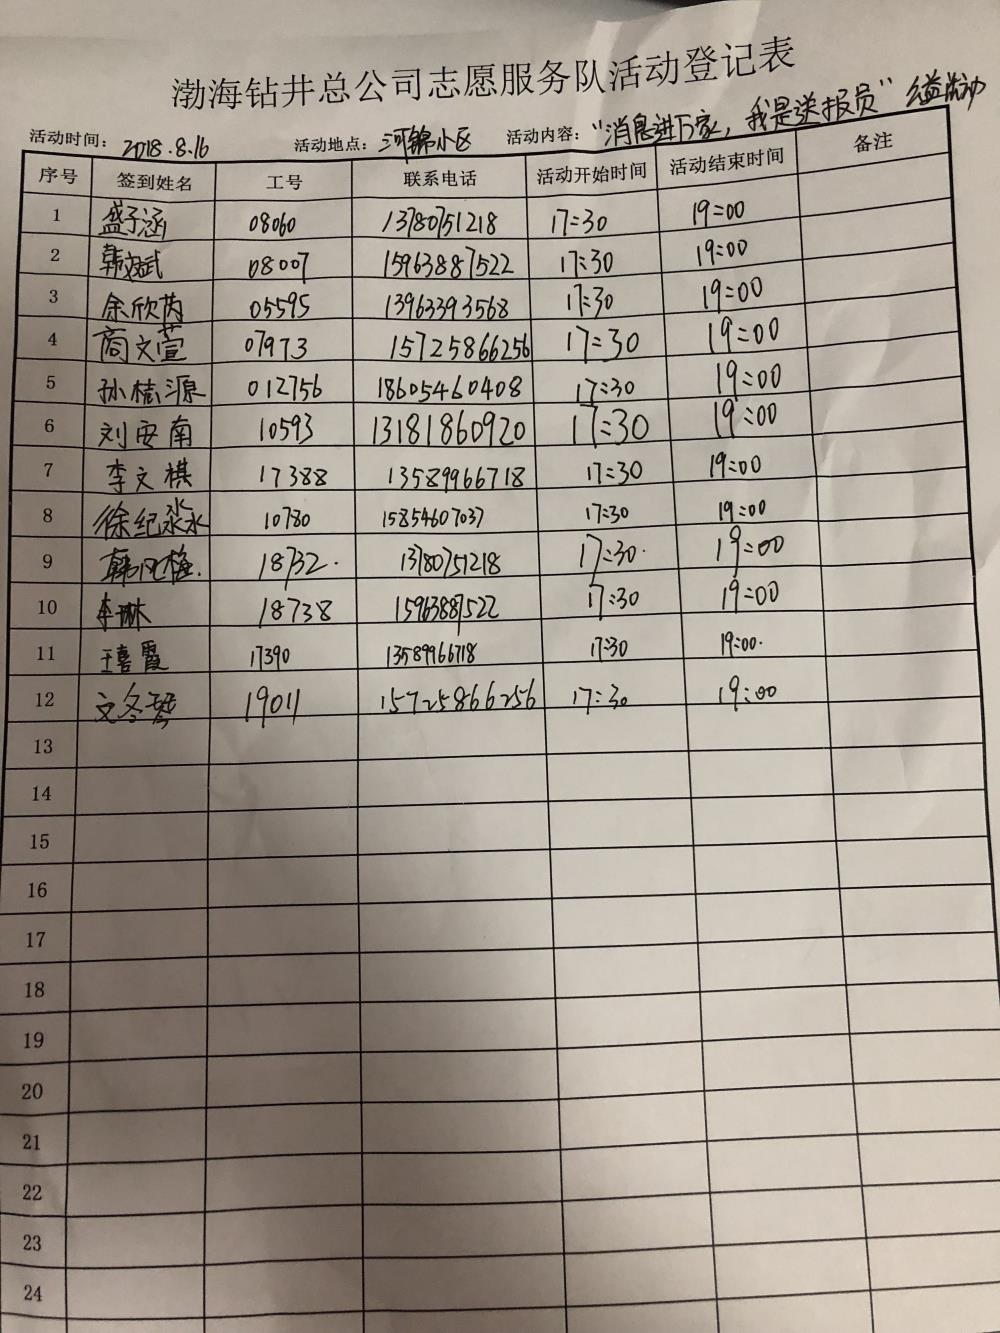 渤海钻井总公司志愿服务队活动登记表
活动时间: 2018.8.16 活动地点: 河锦小区 活动内容: "消息进万家, 我是送报员" 公益活动
序号 签到姓名 工号 联系电话 活动开始时间 活动结束时间 备注
1 盛子涵 08060 13780751218 17:30 19:00
2 韩斌 08007 15963887522 17:30 19:00
3 余欣芮 05595 13963393568 17:30 19:00
4 商文萱 07973 15725866256 17:30 19:00
5 孙桂源 012756 18605460408 17:30 19:00
6 刘安南 10593 13181860920 17:30 19:00
7 李文棋 17388 13589966718 17:30 19:00
8 徐纪淼 10780 15854607037 17:30 19:00
9 韩风梅 18732 13780751218 17:30 19:00
10 李琳 18738 15963887522 17:30 19:00
11 王喜霞 17390 13589966718 17:30 19:00
12 文冬琴 19011 15725866256 17:30 19:00
13
14
15
16
17
18
19
20
21
22
23
24